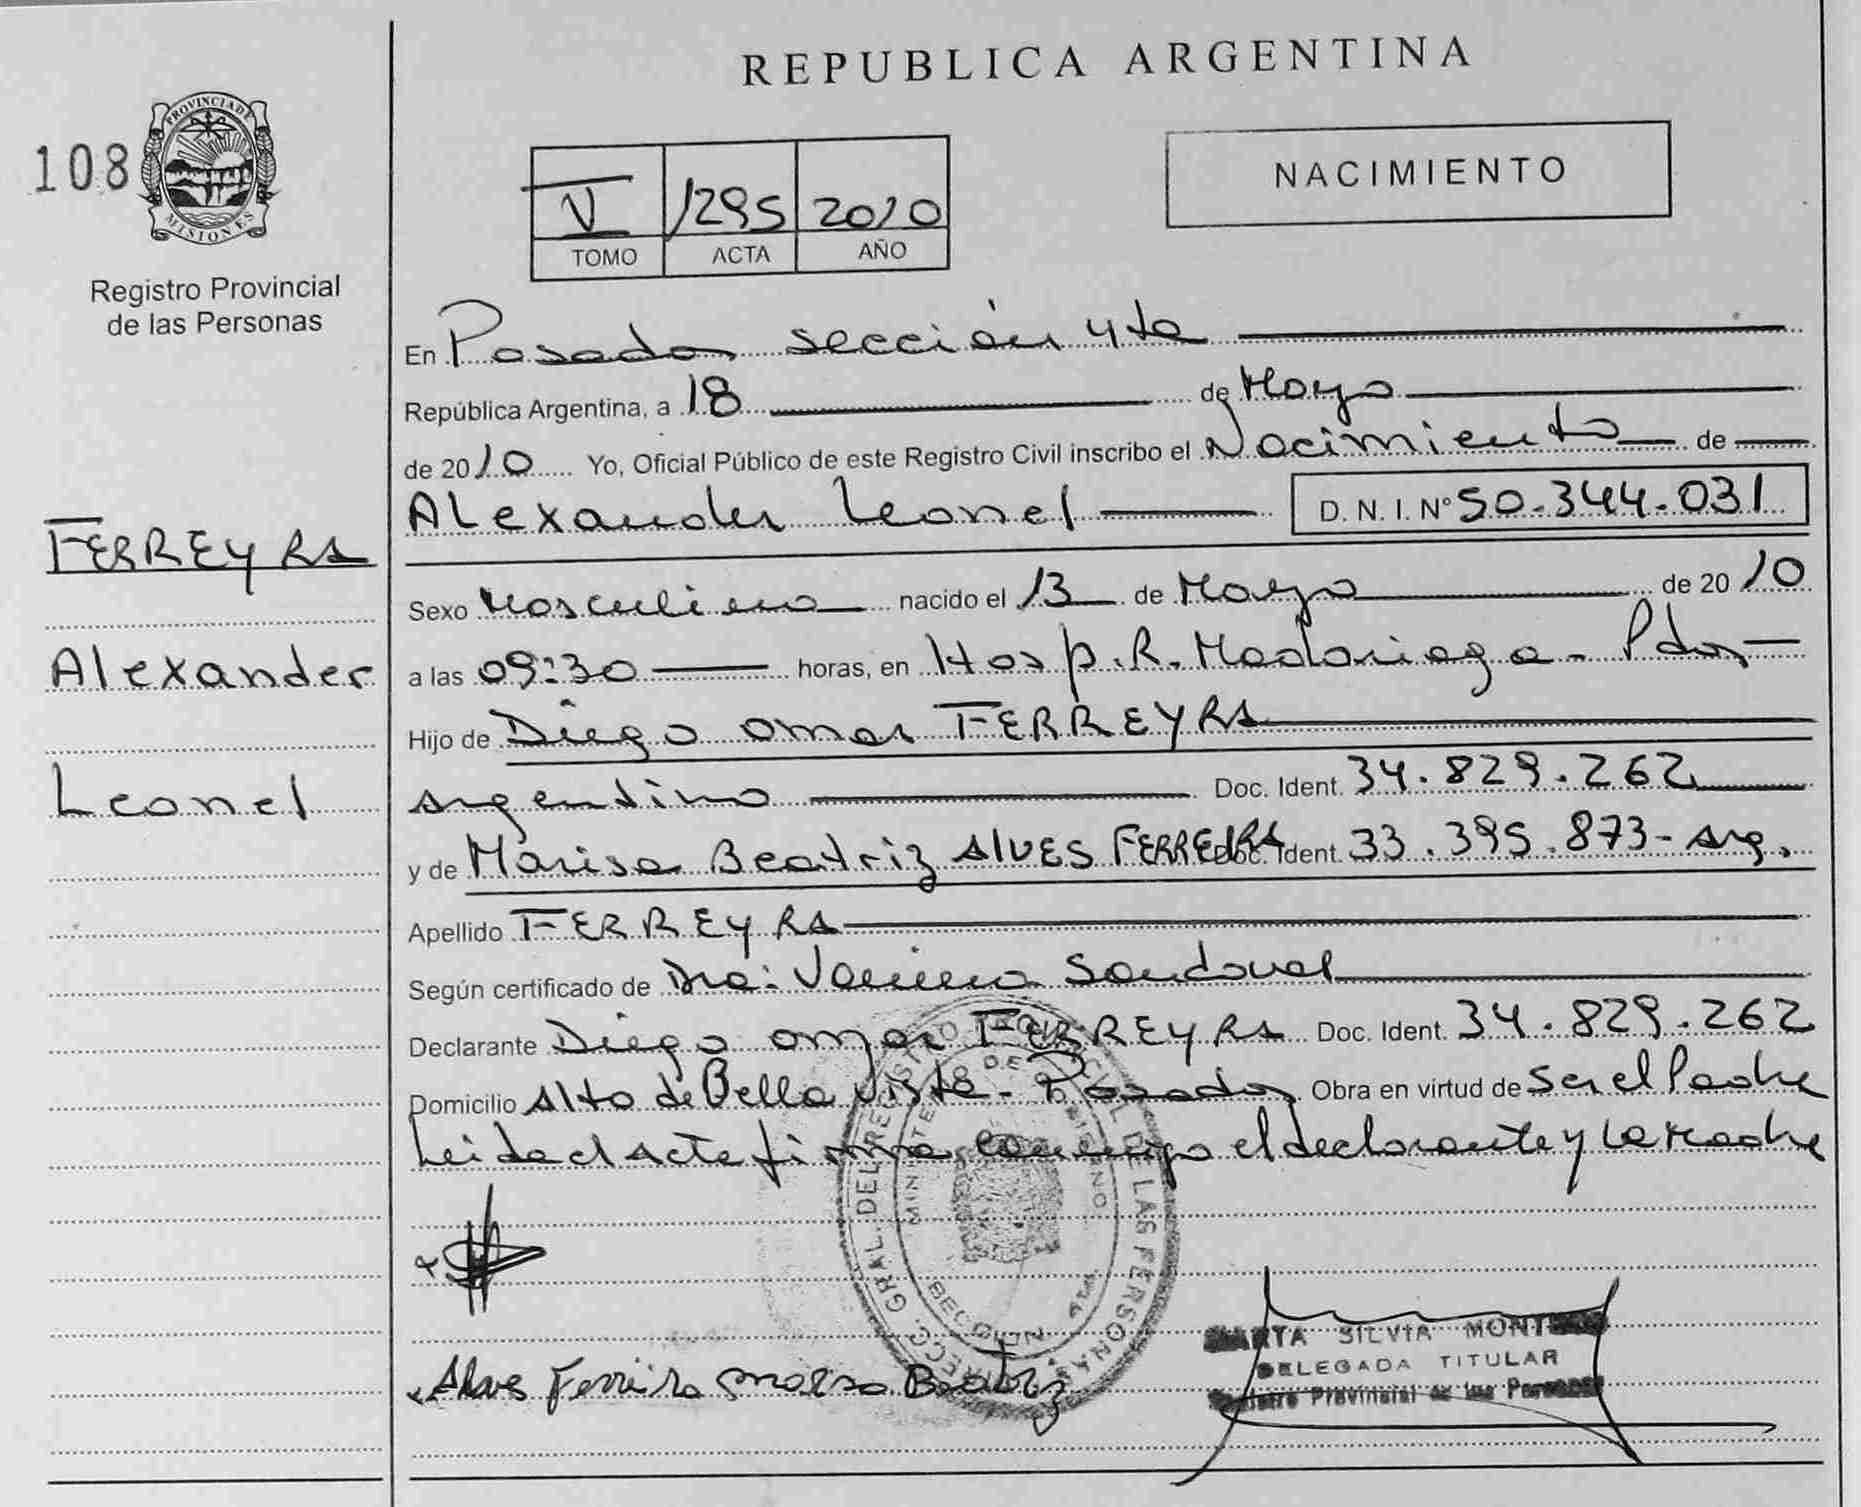 REPUBLICA ARGENTINA
108
PROVINCIA DE MISIONES
Registro Provincial
de las Personas
V 1295 2010
TOMO ACTA AÑO
NACIMIENTO
FERREYRA
Alexander
Leonel
En Posadas sección 4ta
República Argentina, a 18 de Mayo
de 2010 Yo, Oficial Público de este Registro Civil inscribo el Nacimiento de
Alexander Leonel D. N. I. Nº 50.344.031
Sexo Masculino nacido el 13 de Mayo de 2010
a las 09:30 horas, en Hosp. R. Madariaga - Pdas
Hijo de Diego Omar FERREYRA
argentino Doc. Ident. 34.829.262
y de Marisa Beatriz ALVES FERREIRA Doc. Ident. 33.395.873 - arg.
Apellido FERREYRA
Según certificado de Dra: Vanina Sandoval
Declarante Diego Omar FERREYRA Doc. Ident. 34.829.262
Domicilio Alto de Bella Vista - Posadas Obra en virtud de ser el Padre
Leida el acta firma conmigo el declarante y la Madre
DEL REGISTRO DE LAS PERSONAS
Alves Ferreira Beatriz
MARTA SILVIA
DELEGADA TITULAR
Registro Provincial de las Personas